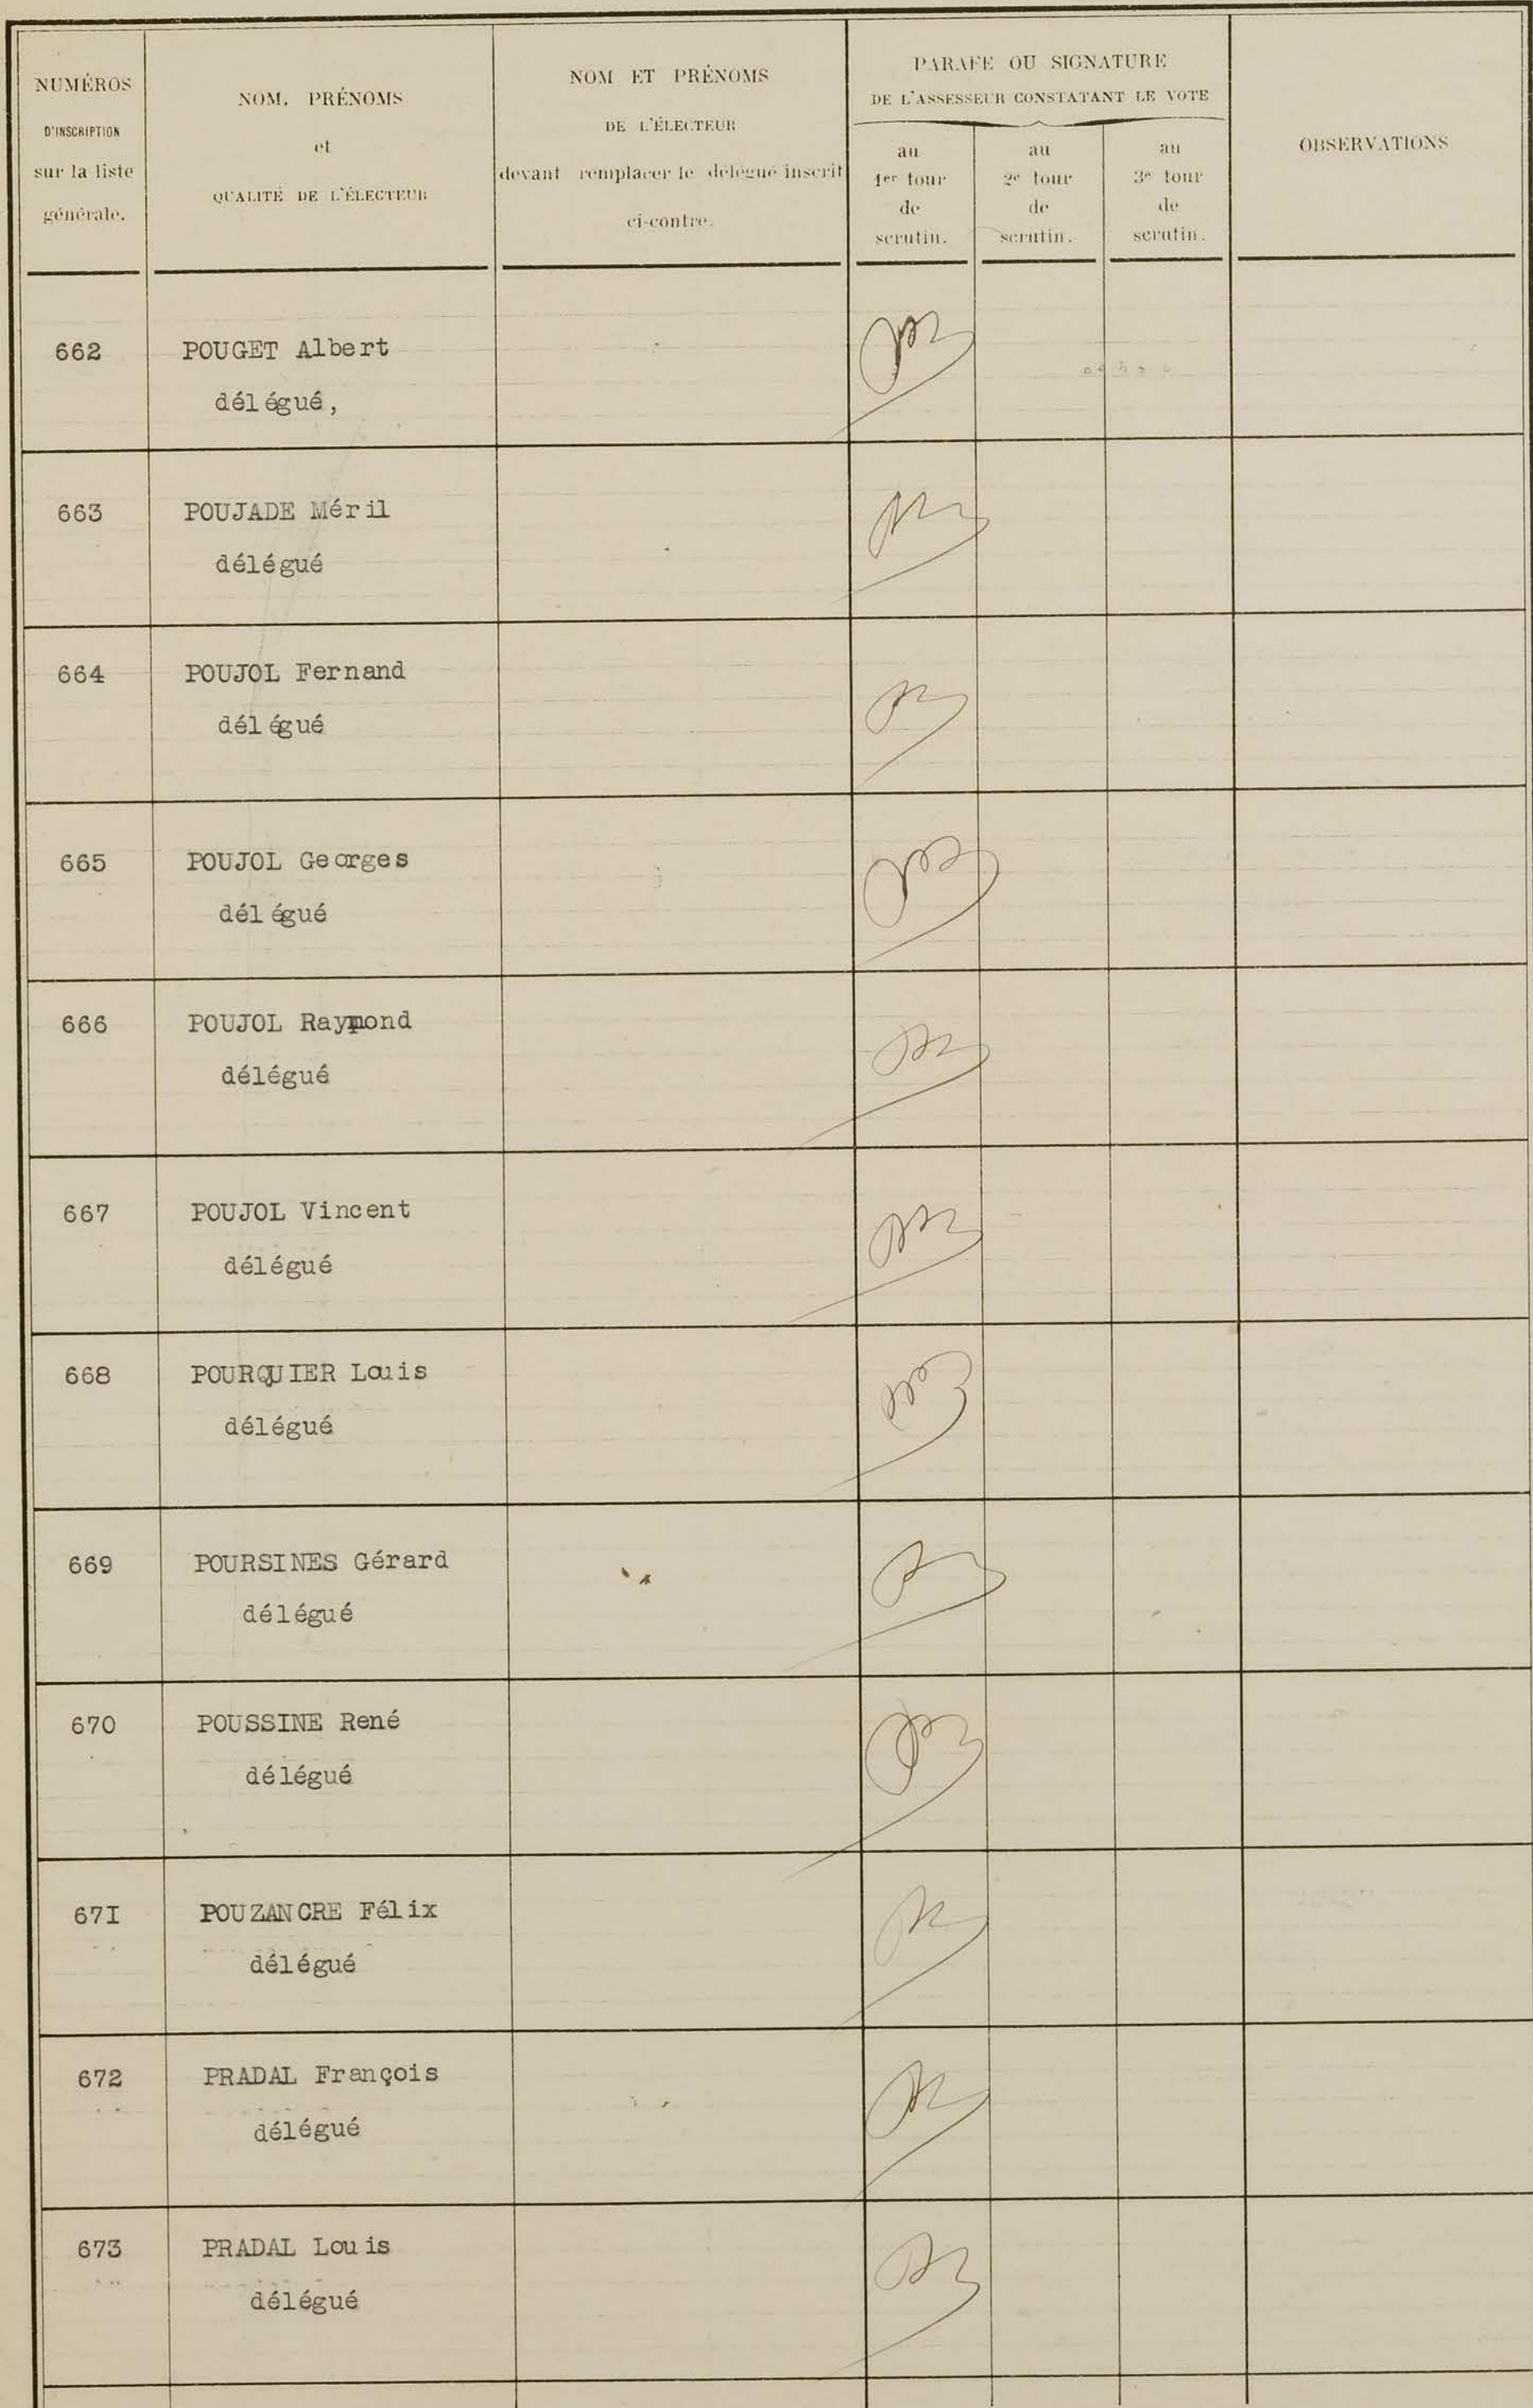 NUMÉROS
D'INSCRIPTION
sur la liste
générale.
NOM, PRÉNOMS
et
QUALITÉ DE L'ÉLECTEUR
NOM ET PRÉNOMS
DE L'ÉLECTEUR
devant remplacer le délégué inscrit
ci-contre.
PARAFE OU SIGNATURE
DE L'ASSESSEUR CONSTATANT LE VOTE
au
1er tour
de
scrutin.
au
2e tour
de
scrutin.
au
3e tour
de
scrutin.
OBSERVATIONS
662 POUGET Albert
délégué,
663 POUJADE Méril
délégué
664 POUJOL Fernand
délégué
665 POUJOL Georges
délégué
666 POUJOL Raymond
délégué
667 POUJOL Vincent
délégué
668 POURQUIER Louis
délégué
669 POURSINES Gérard
délégué
670 POUSSINE René
délégué
67I POUZANCRE Félix
délégué
672 PRADAL François
délégué
673 PRADAL Louis
délégué